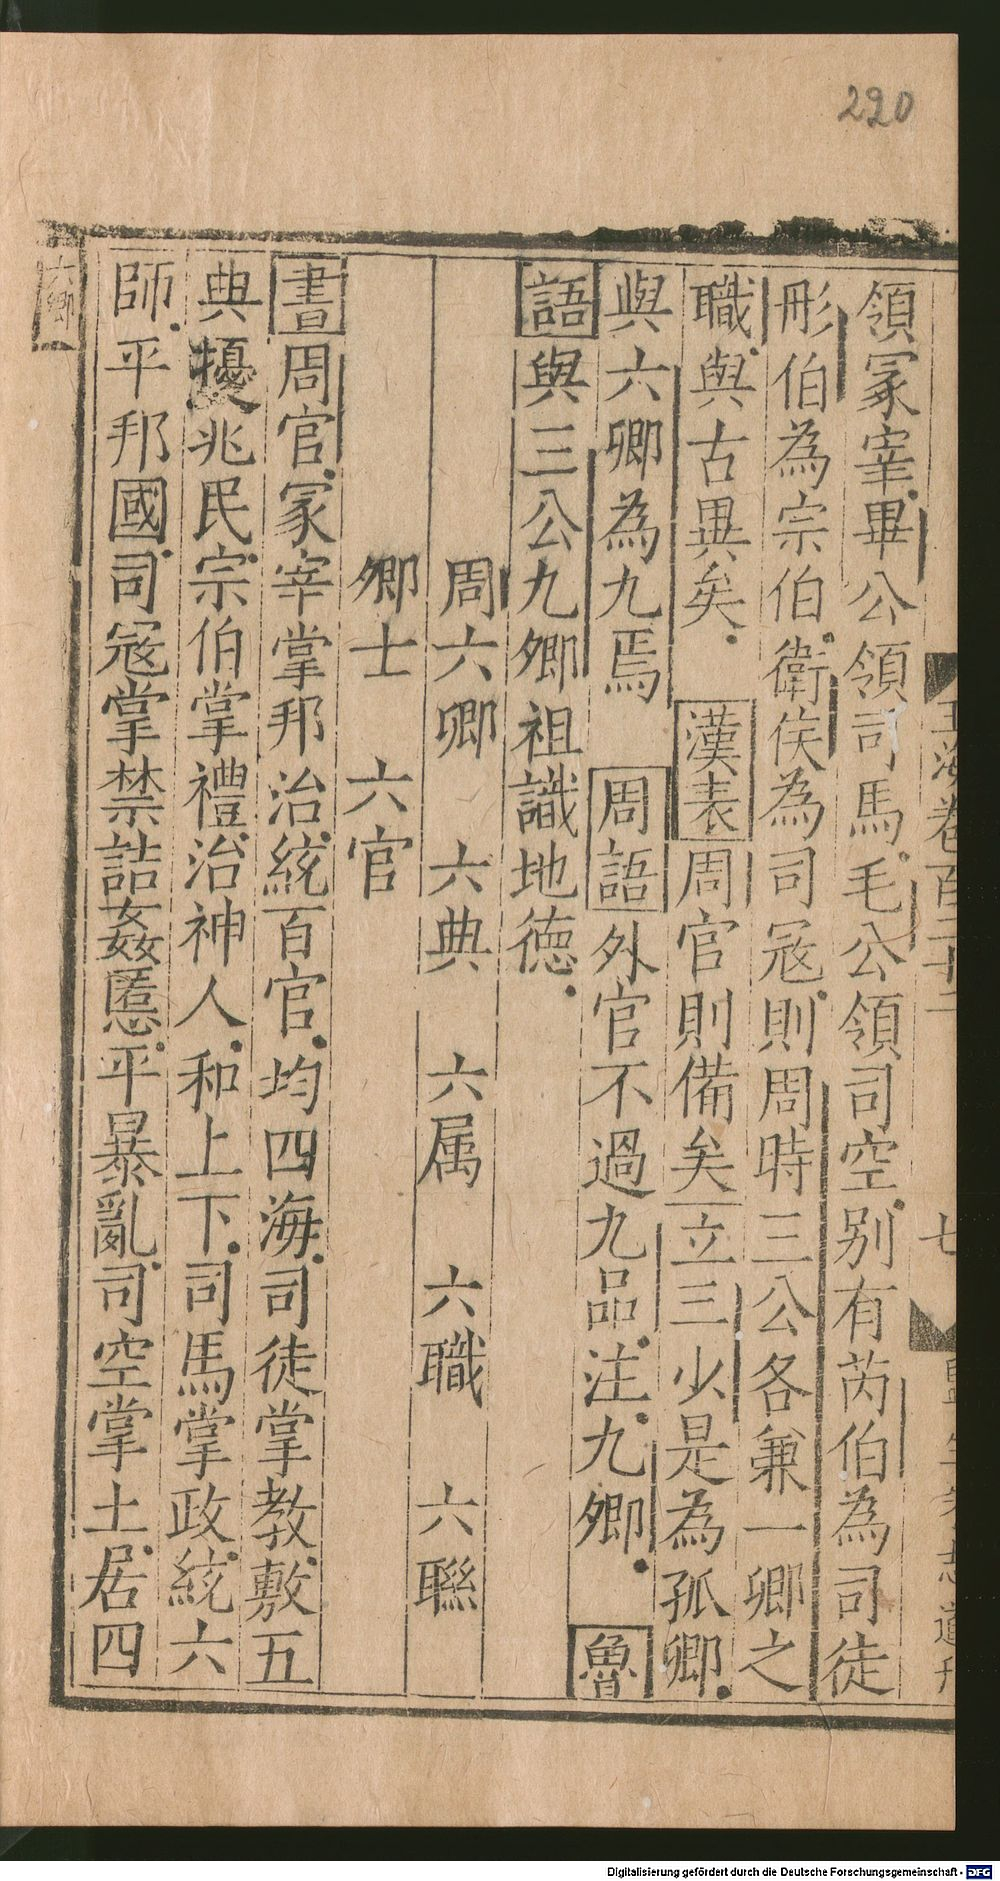 220
領冢宰畢公領司馬毛公領司空别有芮伯為司徒
彤伯為宗伯衛侯為司冦則周時三公各兼一卿之
職與古異矣 漢表周官則備矣立三少是為孤卿
與六卿為九焉 周語外官不過九品注九卿 魯
語與三公九卿祖識地德
周六卿 六典 六属 六職 六聯
卿士 六官
書周官冢宰掌邦治統百官均四海司徒掌教敷五
典擾兆民宗伯掌禮治神人和上下司馬掌政統六
師平邦國司冦掌禁詰姦慝平暴亂司空掌土居四
六卿
玉海卷百二十二
七
Digitalisierung gefördert durch die Deutsche Forschungsgemeinschaft - DFG